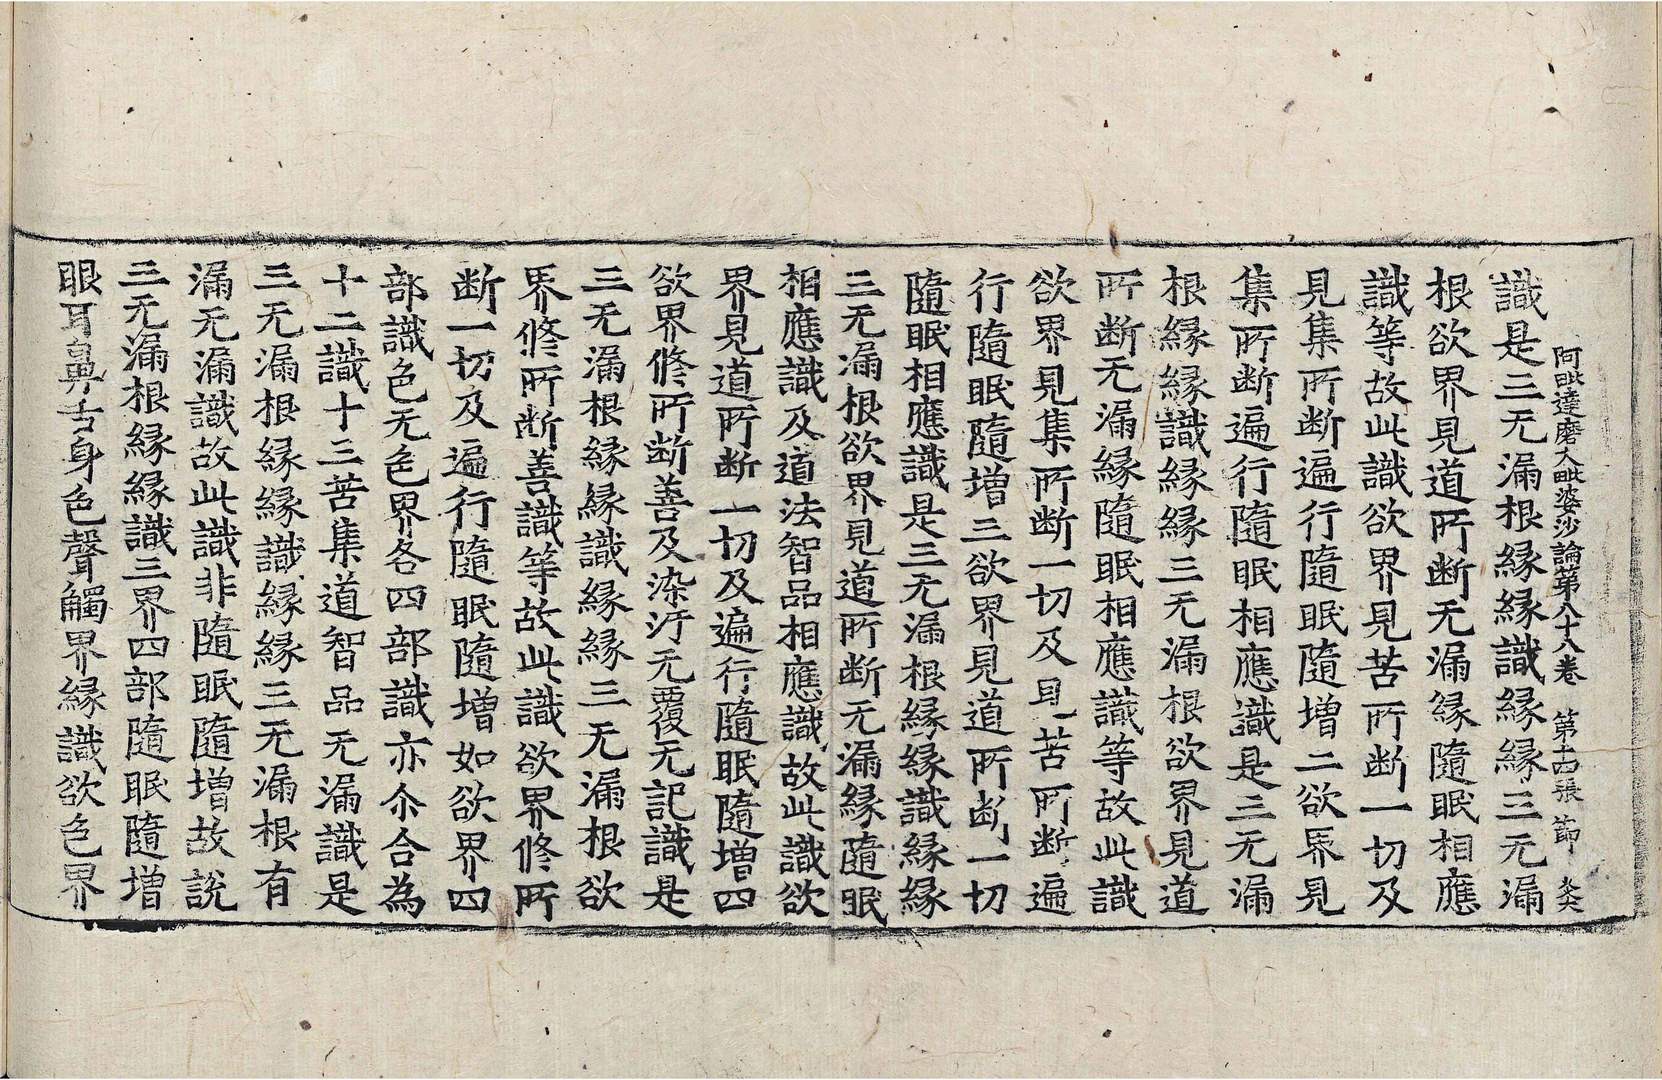 阿毗達磨大毗婆沙論第八十八卷 第十四張 節 炎
識是三无漏根縁縁識縁縁三无漏
根欲界見道所断无漏縁隨眠相應
識等故此識欲界見苦所断一切及
見集所断遍行隨眠隨增二欲界見
集所断遍行隨眠相應識是三无漏
根縁縁識縁縁三无漏根欲界見道
所断无漏縁隨眠相應識等故此識
欲界見集所断一切及見苦所断遍
行隨眠隨增三欲界見道所断一切
隨眠相應識是三无漏根縁縁識縁縁
三无漏根欲界見道所断无漏縁隨眠
相應識及道法智品相應識故此識欲
界見道所断一切及遍行隨眠隨增四
欲界修所断善及染汙无覆无記識是
三无漏根縁縁識縁縁三无漏根欲
界修所断善識等故此識欲界修所
断一切及遍行隨眠隨增如欲界四
部識色无色界各四部識亦尒合為
十二識十三苦集道智品无漏識是
三无漏根縁縁識縁縁三无漏根有
漏无漏識故此識非隨眠隨增故說
三无漏根縁縁識三界四部隨眠隨增
眼耳鼻舌身色聲觸界縁識欲色界